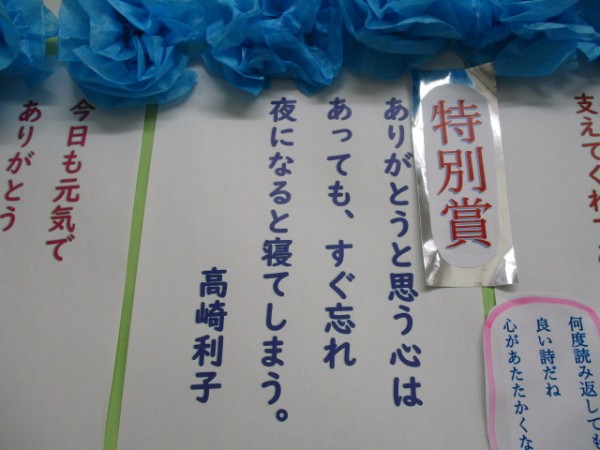 支えてくれて
何度読み返しても
良い詩だね
心があたたかくな
特別賞
ありがとうと思う心は
あっても、すぐ忘れ
夜になると寝てしまう。
高崎利子
今日も元気で
ありがとう